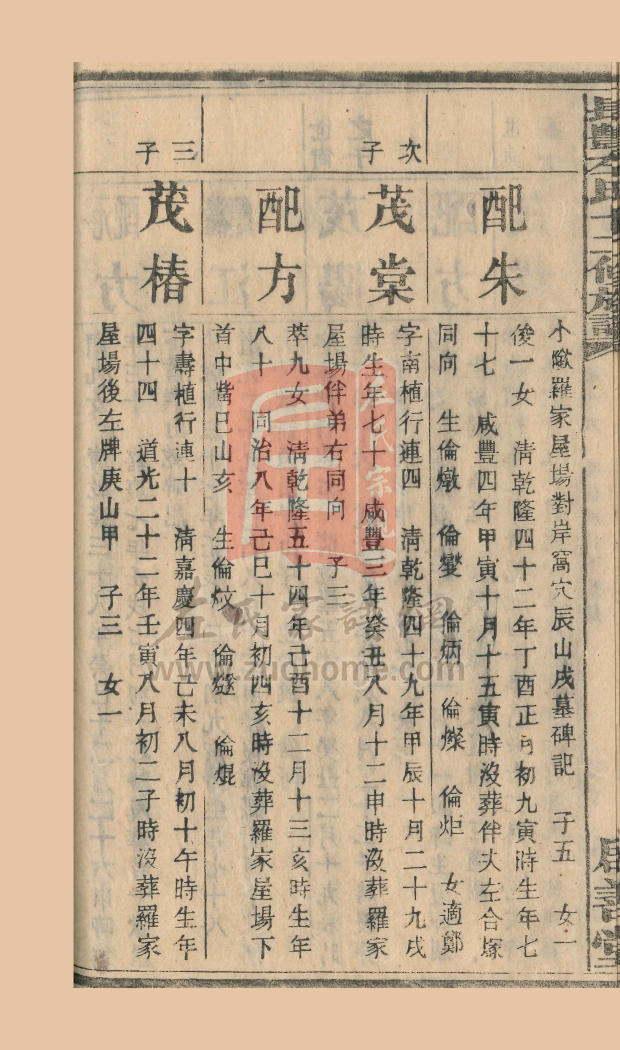 小墩羅家屋場對岸窩穴辰山戌墓碑記 子五 女一
配朱
俊一女 清乾隆四十二年丁酉正月初九寅時生年七
十七 咸豐四年甲寅十月十五寅時沒葬伴夫左合塚
同向 生倫燉 倫燮 倫炳 倫燦 倫炬 女適鄭
次子
茂棠
字南植行連四 清乾隆四十九年甲辰十月二十九戌
時生年七十 咸豐三年癸丑八月十二申時沒葬羅家
屋場伴弟右同向 子三
配方
萃九女 清乾隆五十四年己酉十二月十三亥時生年
八十 同治八年己巳十月初四亥時沒葬羅家屋場下
首中嘴巳山亥 生倫炆 倫燧 倫焜
三子
茂椿
字壽植行連十 清嘉慶四年己未八月初十午時生年
四十四 道光二十二年壬寅八月初二子時沒葬羅家
屋場後左牌庚山甲 子三 女一
左氏家譜網
www.zuohome.com